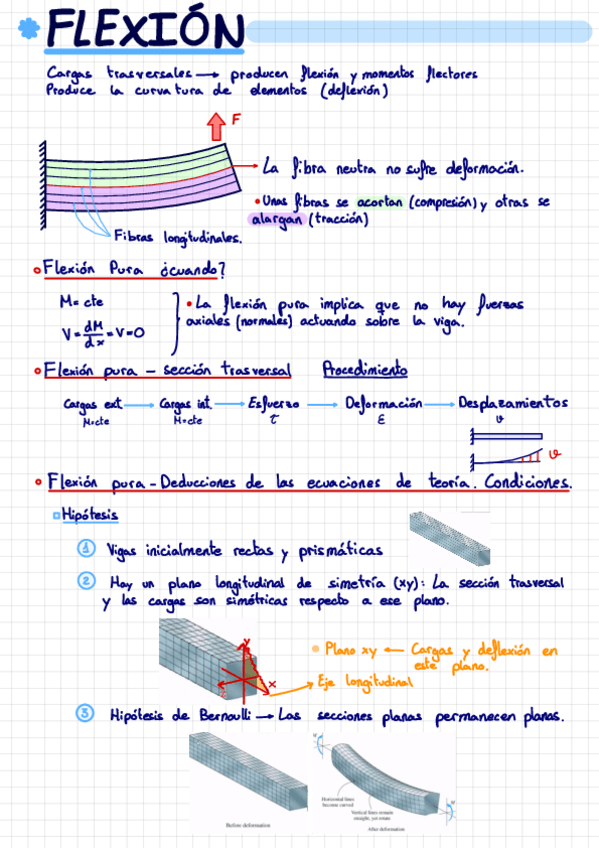 FLEXIÓN
Cargas trasversales → producen flexión y momentos flectores
Produce la curvatura de elementos (deflexión)
F
La fibra neutra no sufre deformación.
• Unas fibras se acortan (compresión) y otras se
alargan (tracción)
Fibras longitudinales.
Flexión Pura ¿cuando?
M= cte
V = dM/dx = V=0
• La flexión pura implica que no hay fuerzas
axiales (normales) actuando sobre la viga.
Flexión pura - sección trasversal Procedimiento
Cargas ext. → Cargas int. → Esfuerzo → Deformación → Desplazamientos
M=cte M=cte τ ε v
v
Flexión pura - Deducciones de las ecuaciones de teoría. Condiciones.
Hipótesis
1 Vigas inicialmente rectas y prismáticas
2 Hay un plano longitudinal de simetría (xy): La sección trasversal
y las cargas son simétricas respecto a ese plano.
y
x
Plano xy ← Cargas y deflexión en
este plano.
Eje longitudinal
3 Hipótesis de Bernoulli → Las secciones planas permanecen planas.
Horizontal lines
become curved
Vertical lines remain
straight, yet rotate
Before deformation
After deformation